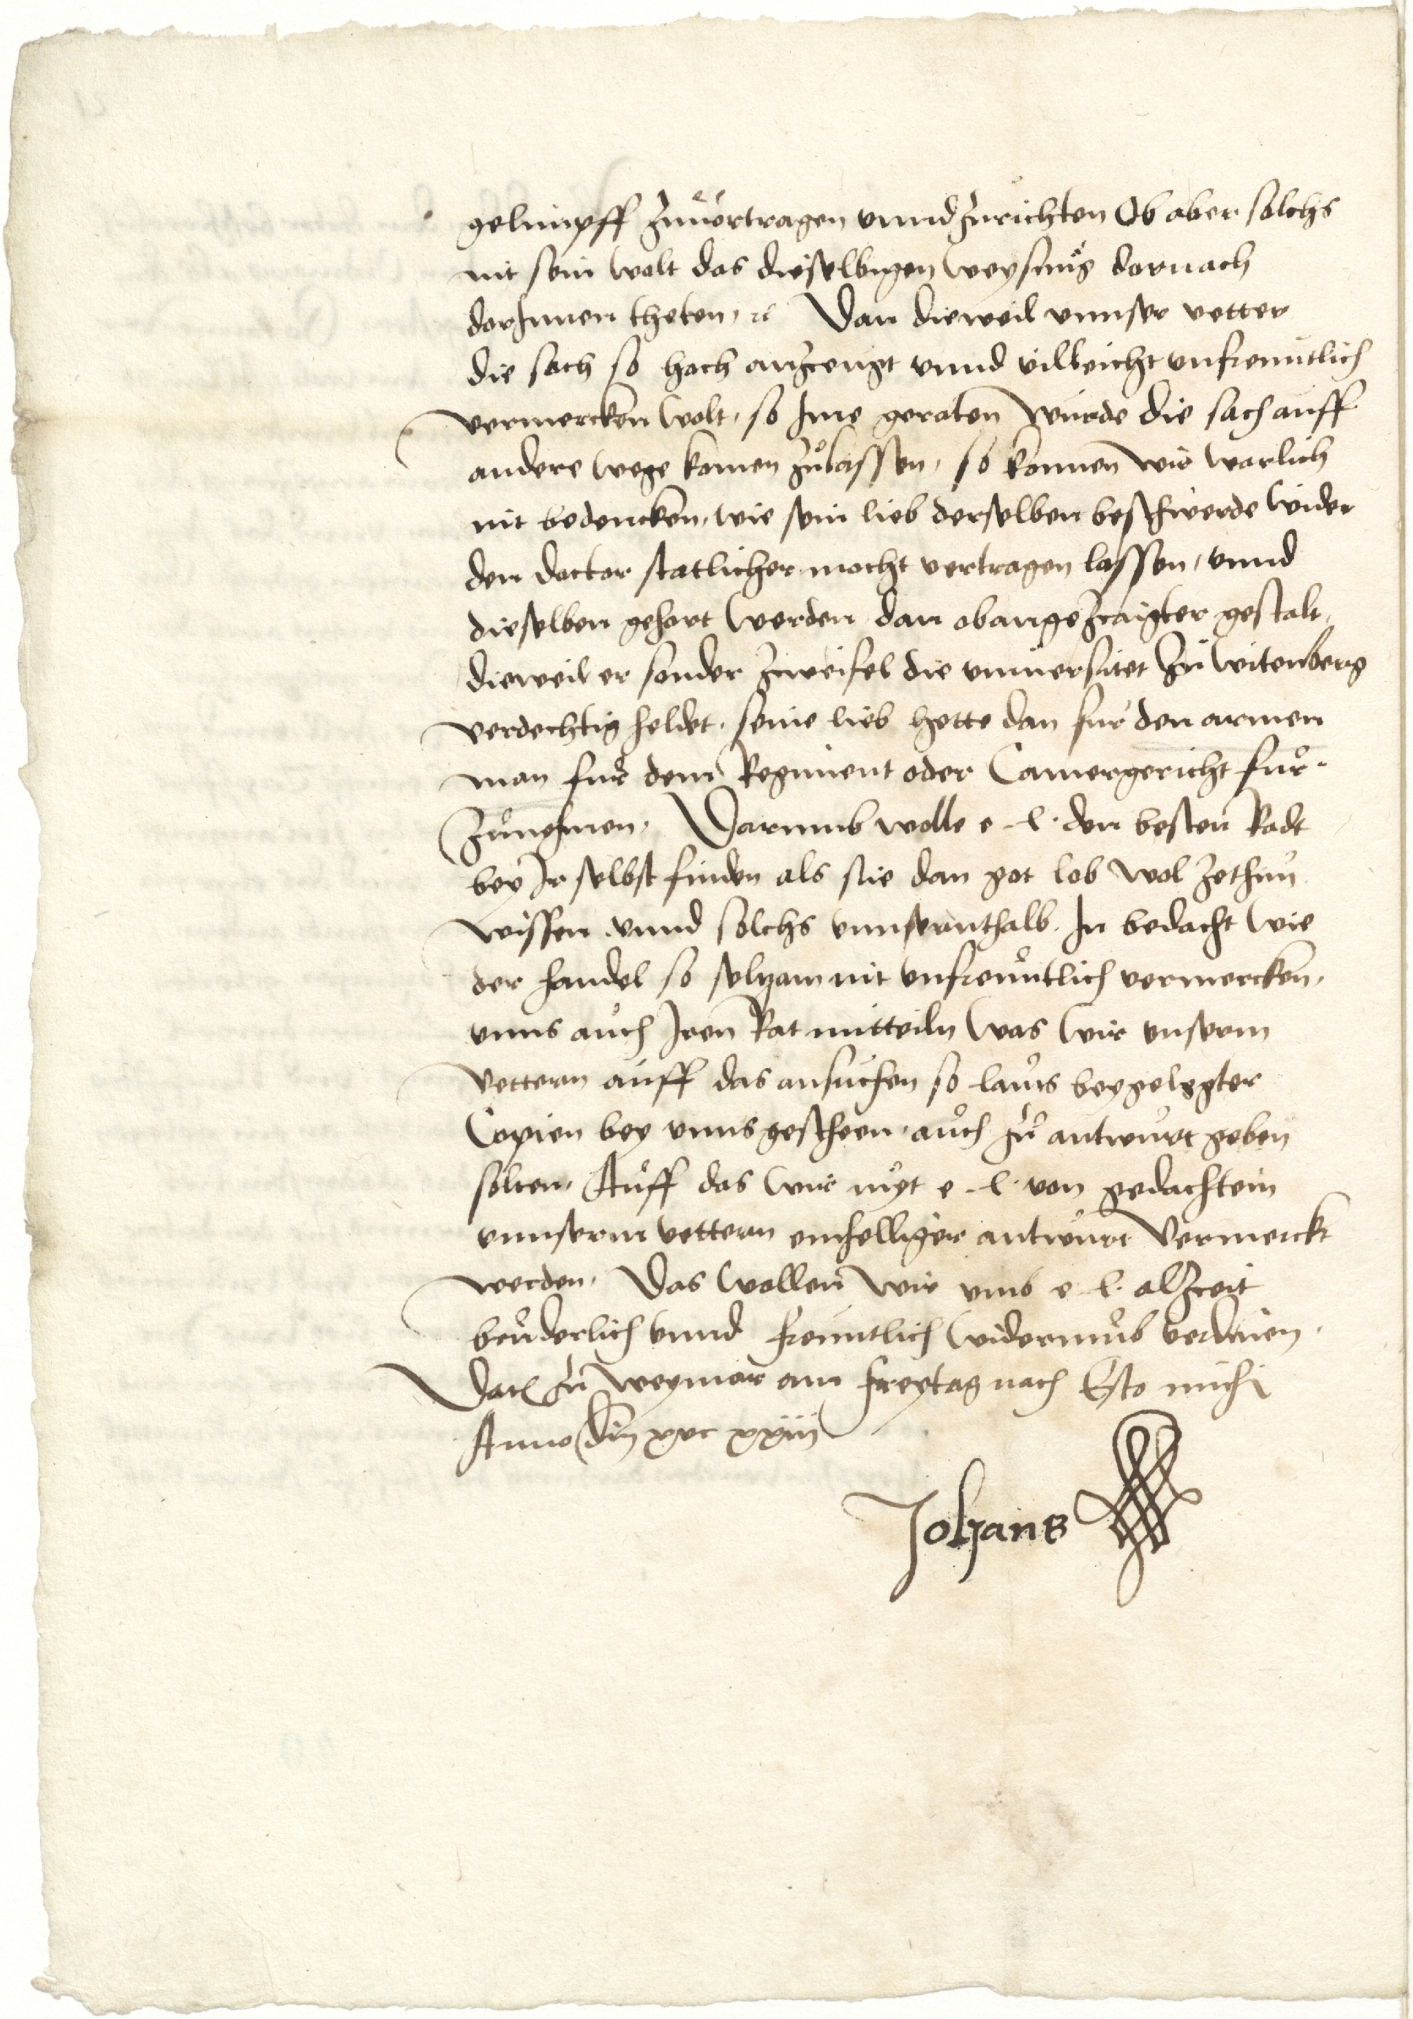 gelimpff zuvertragen vnnd zurichten Ob aber solchs
nit sein wolt das dieselbigen weysung dornach
dorInnen theten, rc Dan dieweil vnnser vetter
die sach so hoch anzceugt vnnd villeicht vnfreuntlich
vermercken wolt, so Ime geraten wurde die sach auff
andere wege komen zulassen, so konnen wir warlich
nit bedencken, wie sein lieb derselben beschwerde wider
den doctor statlicher mocht vertragen lassen, vnnd
dieselben gehort werden dan obangezcaigter gestalt,
dieweil er sonder zweifel die vniuersitet zu witenberg
verdechtig heldet, seine lieb hette dan fur den armen
man fur dem Regiment oder Camergericht fur-
zunehmen, Darumb wolle e l den besten Radt
bey Ir selbst finden als sie dan got lob wol zethun
wissen vnnd solchs vnnsernthalb In bedacht wie
der handel so selzam nit vnfreuntlich vermercken,
vnns auch Iren Rat mitteiln was wir vnserm
vettern auff das ansuchen so lauts beygelegter
Copien bey vnns gescheen, auch zu antwurt geben
solten, Auff das wir myt e l von gedachtem
vnnserm vettern einhelliger antwurt vermerckt
werden, Das wollen wir vmb e l alzceit
bruderlich vnnd freuntlich widerumb verdinen,
Dat zu weymar am freytag nach Esto michi
Anno dni xvc xxiii
Johans